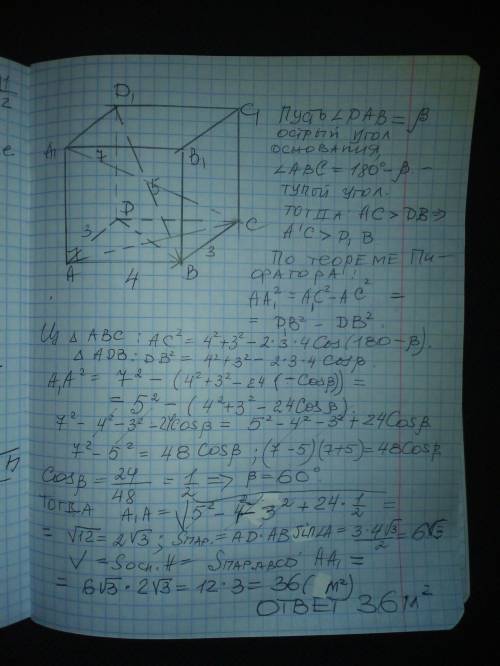 D₁ C₁
A₁ 7 B₁
5
D C
3 3
A 4 B
Пусть ∠DAB = β
острый угол
основания,
∠ABC = 180° - β -
тупой угол.
тогда AC > DB ⇒
A'C > D₁B
По теореме Пи-
фагора:
AA₁² = A₁C² - AC² =
= DB² - DB².
Из △ ABC: AC² = 4² + 3² - 2·3·4 Cos(180 - β).
△ ADB: DB² = 4² + 3² - 2·3·4 Cos β.
A₁A² = 7² - (4² + 3² - 24 (-Cosβ)) =
= 5² - (4² + 3² - 24Cosβ).
7² - 4² - 3² - 24Cosβ = 5² - 4² - 3² + 24Cosβ
7² - 5² = 48 Cosβ ; (7-5)(7+5) = 48Cosβ
Cosβ = 24/48 = 1/2 ⇒ β = 60°.
тогда A₁A = √5² - 4² - 3² + 24·1/2 =
= √12 = 2√3 ; Sпар. = AD·AB sin∠A = 3·4√3/2 = 6√3
V = Sосн. H = Sпар.ABCD · AA₁ =
= 6√3 · 2√3 = 12·3 = 36 ( м²)
ОТВЕТ 36 м²